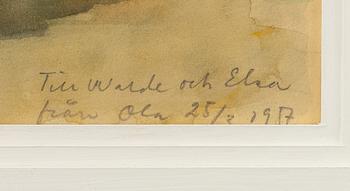 Till Warde och Elsa
från Ola 25/2 1917